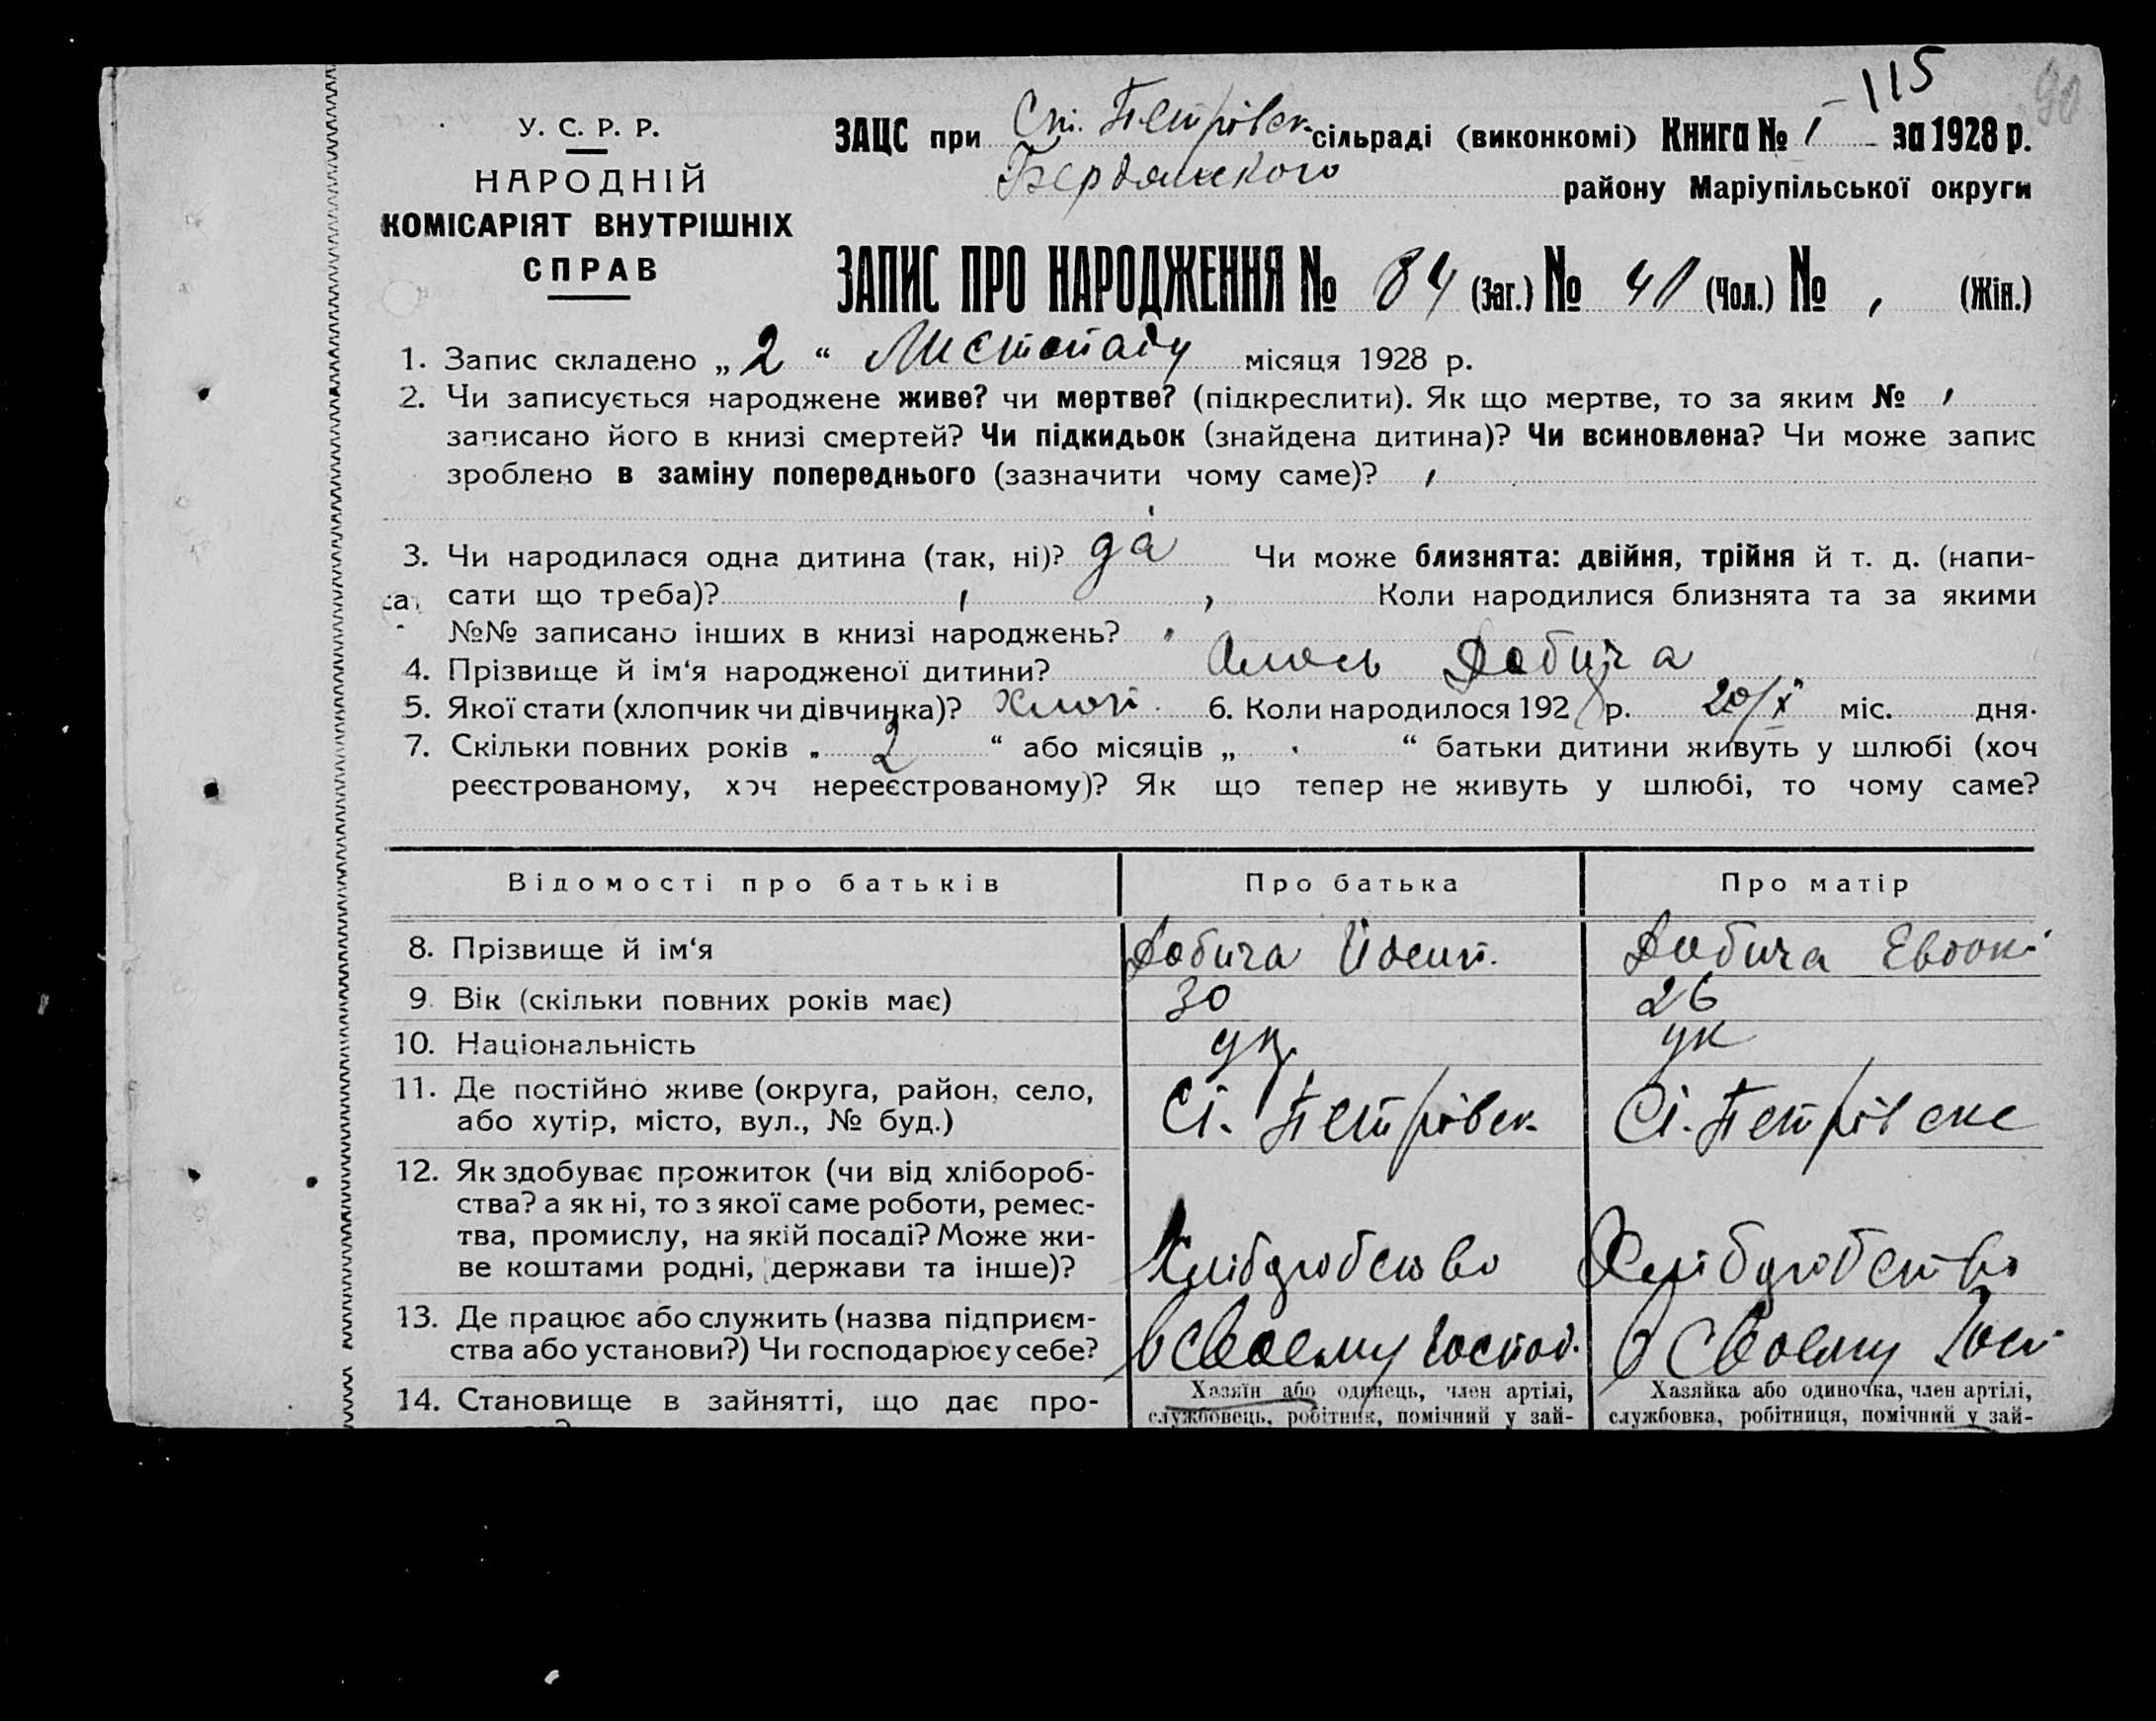 115 90
У. С. Р. Р.
НАРОДНІЙ
КОМІСАРІЯТ ВНУТРІШНІХ
СПРАВ
ЗАЦС при Ст. Петрівск. сільраді (виконкомі) Книга № 1 за 1928 р.
Бердянского району Маріупільської округи
ЗАПИС ПРО НАРОДЖЕННЯ № 84 (Заг.) № 41 (Чол.) № (Жін.)
1. Запис складено „2“ Листопаду місяця 1928 р.
2. Чи записується народжене живе? чи мертве? (підкреслити). Як що мертве, то за яким №
записано його в книзі смертей? Чи підкидьок (знайдена дитина)? Чи всиновлена? Чи може запис
зроблено в заміну попереднього (зазначити чому саме)?
3. Чи народилася одна дитина (так, ні)? да Чи може близнята: двійня, трійня й т. д. (напи-
сати що треба)? Коли народилися близнята та за якими
№№ записано інших в книзі народжень?
4. Прізвище й ім‘я народженої дитини? Добича
5. Якої стати (хлопчик чи дівчинка)? Хлоп. 6. Коли народилося 1928 р. 20/X міс. дня.
7. Скільки повних років „2“ або місяців „ “ батьки дитини живуть у шлюбі (хоч
реєстрованому, хоч нереєстрованому)? Як що тепер не живуть у шлюбі, то чому саме?
Відомості про батьків Про батька Про матір
8. Прізвище й ім‘я Добича Йосип. Добича Евдокі
9. Вік (скільки повних років має) 30 26
10. Національність ук. ук
11. Де постійно живе (округа, район, село,
або хутір, місто, вул., № буд.) Ст. Петрівск. Ст. Петрівске
12. Як здобуває прожиток (чи від хлібороб-
ства? а як ні, то з якої саме роботи, ремес-
тва, промислу, на якій посаді? Може жи-
ве коштами родні, держави та інше)? Хлібдробство Хліборобство
13. Де працює або служить (назва підприєм-
ства або установи?) Чи господарює у себе? В своєму господ. В своєму Госп
14. Становище в зайнятті, що дає про- Хазяїн або одинець, член артілі, Хазяйка або одиночка, член артілі,
службовець, робітник, помічний у зай- службовка, робітниця, помічний у зай-